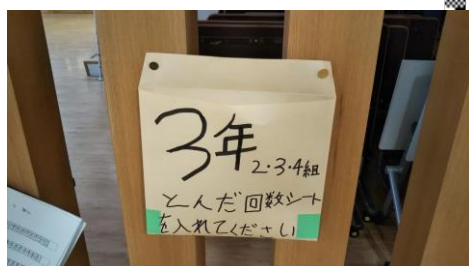 3年
2・3・4組
とんだ回数シート
を入れてください